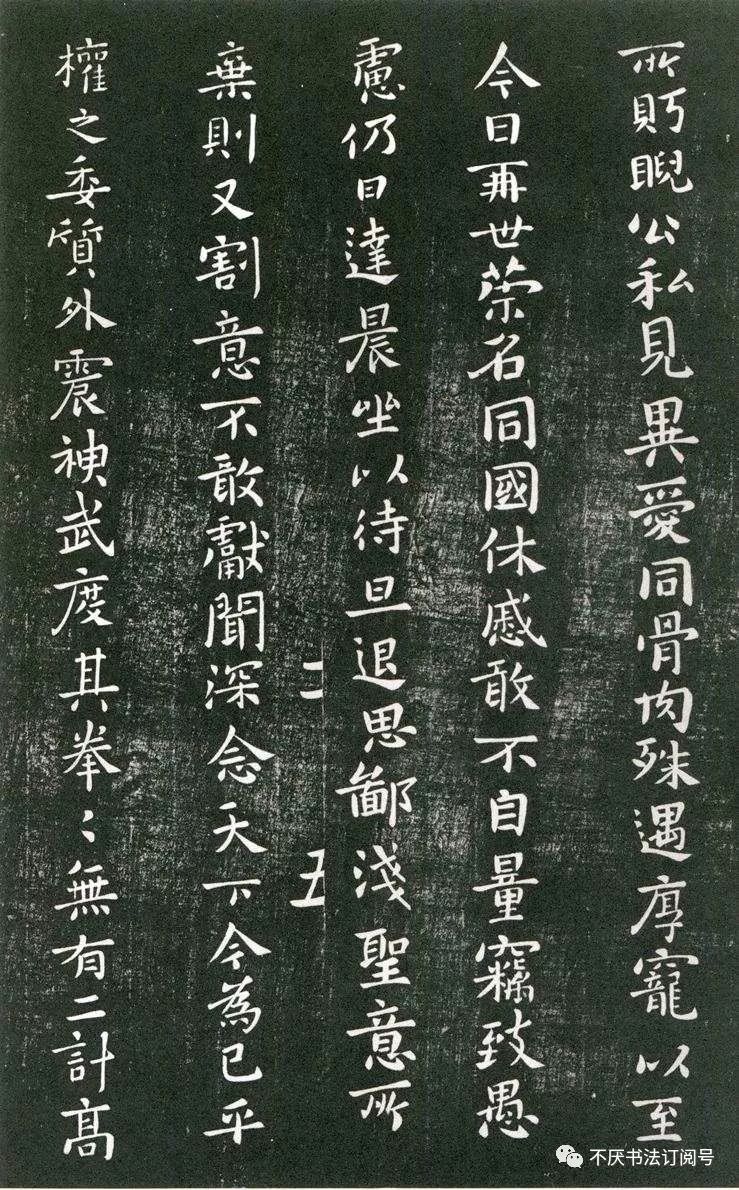 所盱睨公私見異愛同骨肉殊遇厚寵以至
今日再世榮名同國休慼敢不自量竊致愚
慮仍日達晨坐以待旦退思鄙淺聖意所
二五
棄則又割意不敢獻聞深念天下今為已平
權之委質外震神武度其拳〻無有二計高
不厌书法订阅号